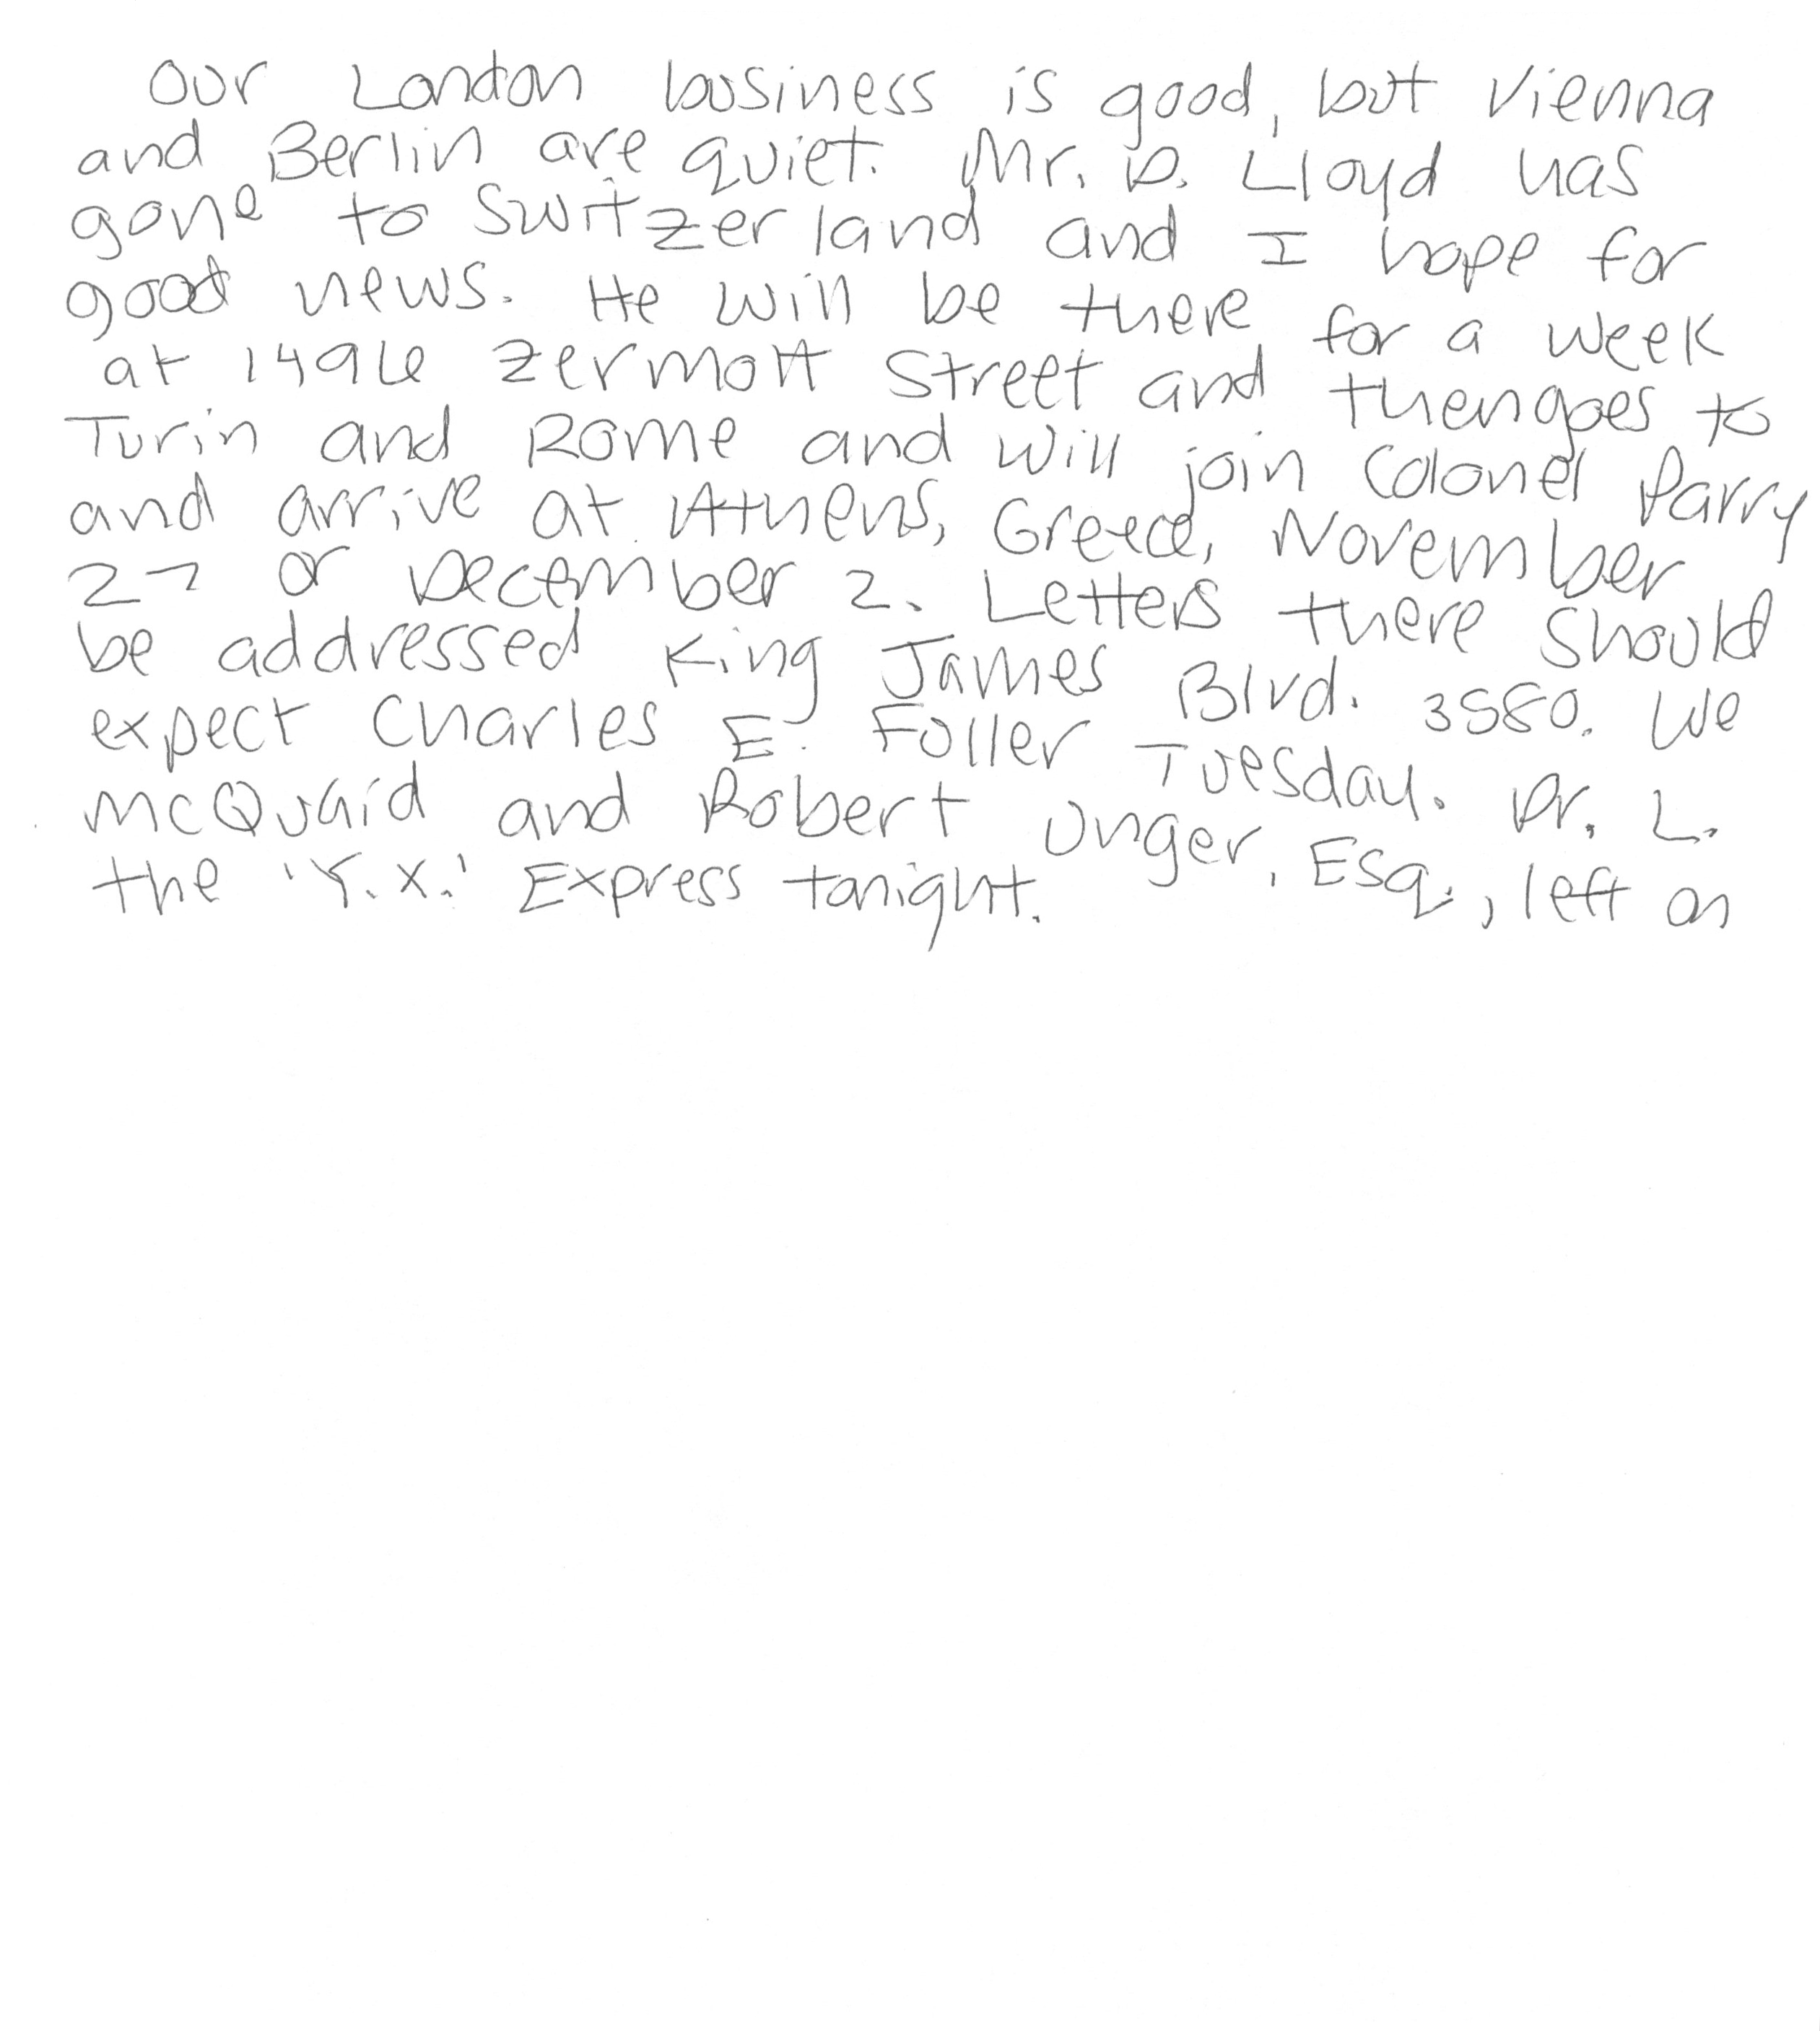 Our London business is good, but Vienna
and Berlin are quiet. Mr. D. Lloyd has
gone to Switzerland and I hope for
good news. He will be there for a week
at 1496 Zermott Street and then goes to
Turin and Rome and will join Colonel Parry
and arrive at Athens, Greece, November
27 or December 2. Letters there should
be addressed King James Blvd. 3580. We
expect Charles E. Fuller Tuesday. Dr. L.
McQuaid and Robert Unger, Esq., left on
the 'Y.X.' Express tonight.